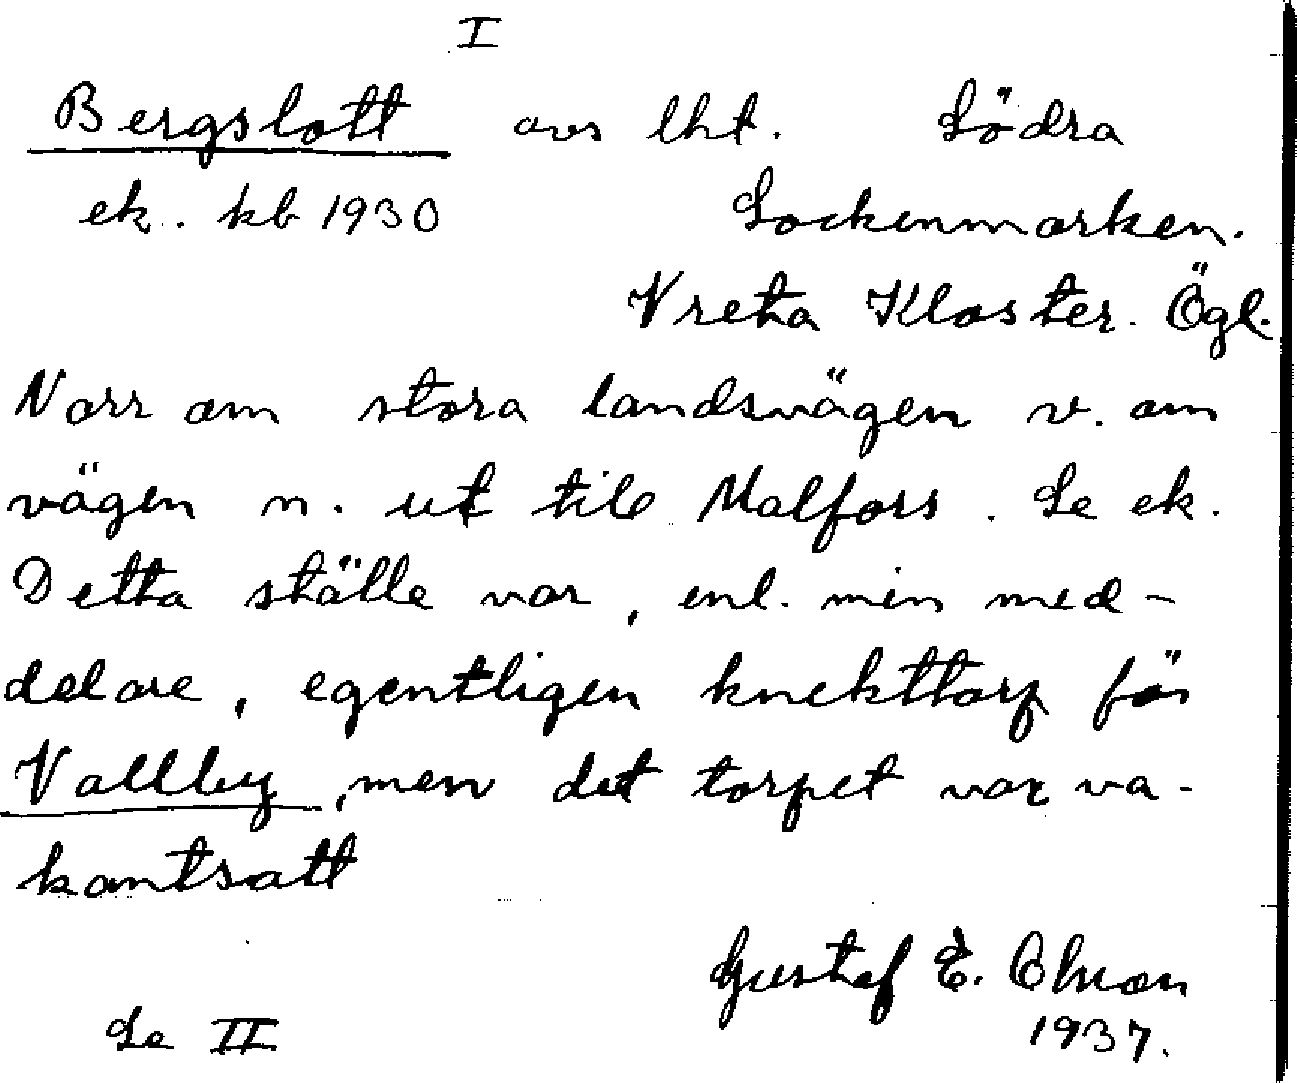 I
Bergslott avs lht. Södra
ek. kb 1930 Sockenmarken.
Vreta Kloster. Ögl.
Norr om stora landsvägen v. om
vägen n. ut till Malfors. Se ek.
Detta ställe var, enl. min med-
delare, egentligen knekttorp för
Vallby, men det torpet var va-
kantsatt
Gustaf E. Olsson
Se II 1937.